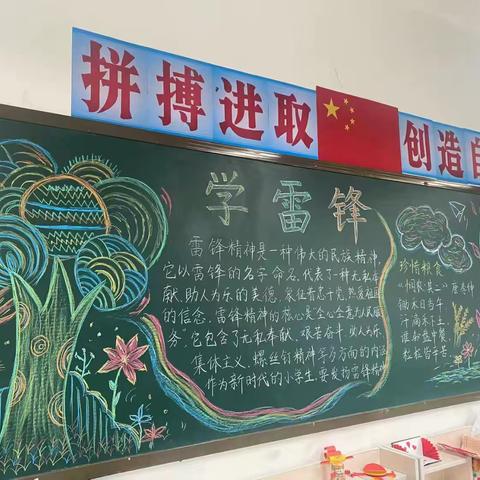 拼搏进取
创造自
学雷锋
雷锋精神是一种伟大的民族精神
它以雷锋的名字命名,代表了一种无私奉
献、助人为乐的美德,象征着忠于党,热爱祖国
的信念。雷锋精神的核心是全心全意为人民服
务。它包含了无私奉献、艰苦奋斗、助人为乐、
集体主义、螺丝钉精神等多方面的内涵
作为新时代的小学生,要发扬雷锋精神
珍惜粮食
《悯农(其二)》
锄禾日当午
汗滴禾下土
谁知盘中餐
粒粒皆辛苦